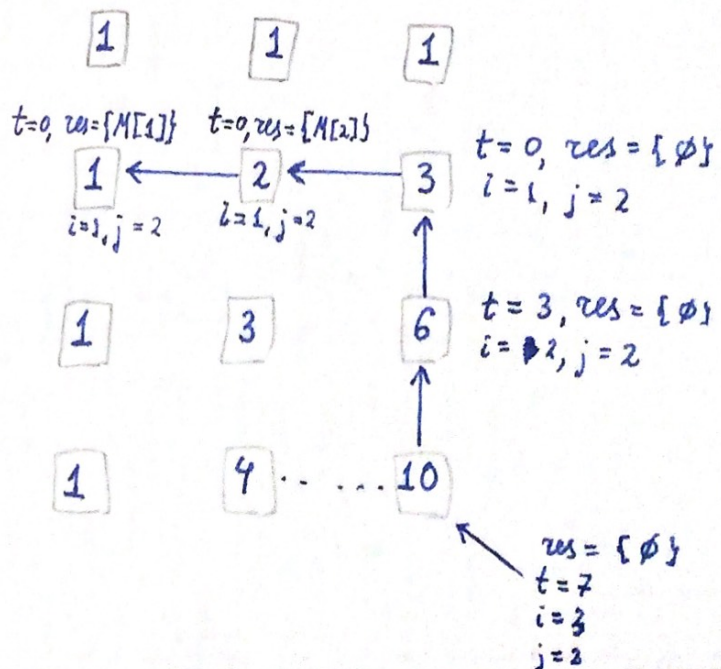 1 1 1
t=0, res={M[1]} t=0, res={M[2]}
1 2 3
t=0, res={ø}
i=1, j=2
i=1, j=2 i=1, j=2
1 3 6
t=3, res={ø}
i=2, j=2
1 4 . . . . . 10
res={ø}
t=7
i=3
j=2